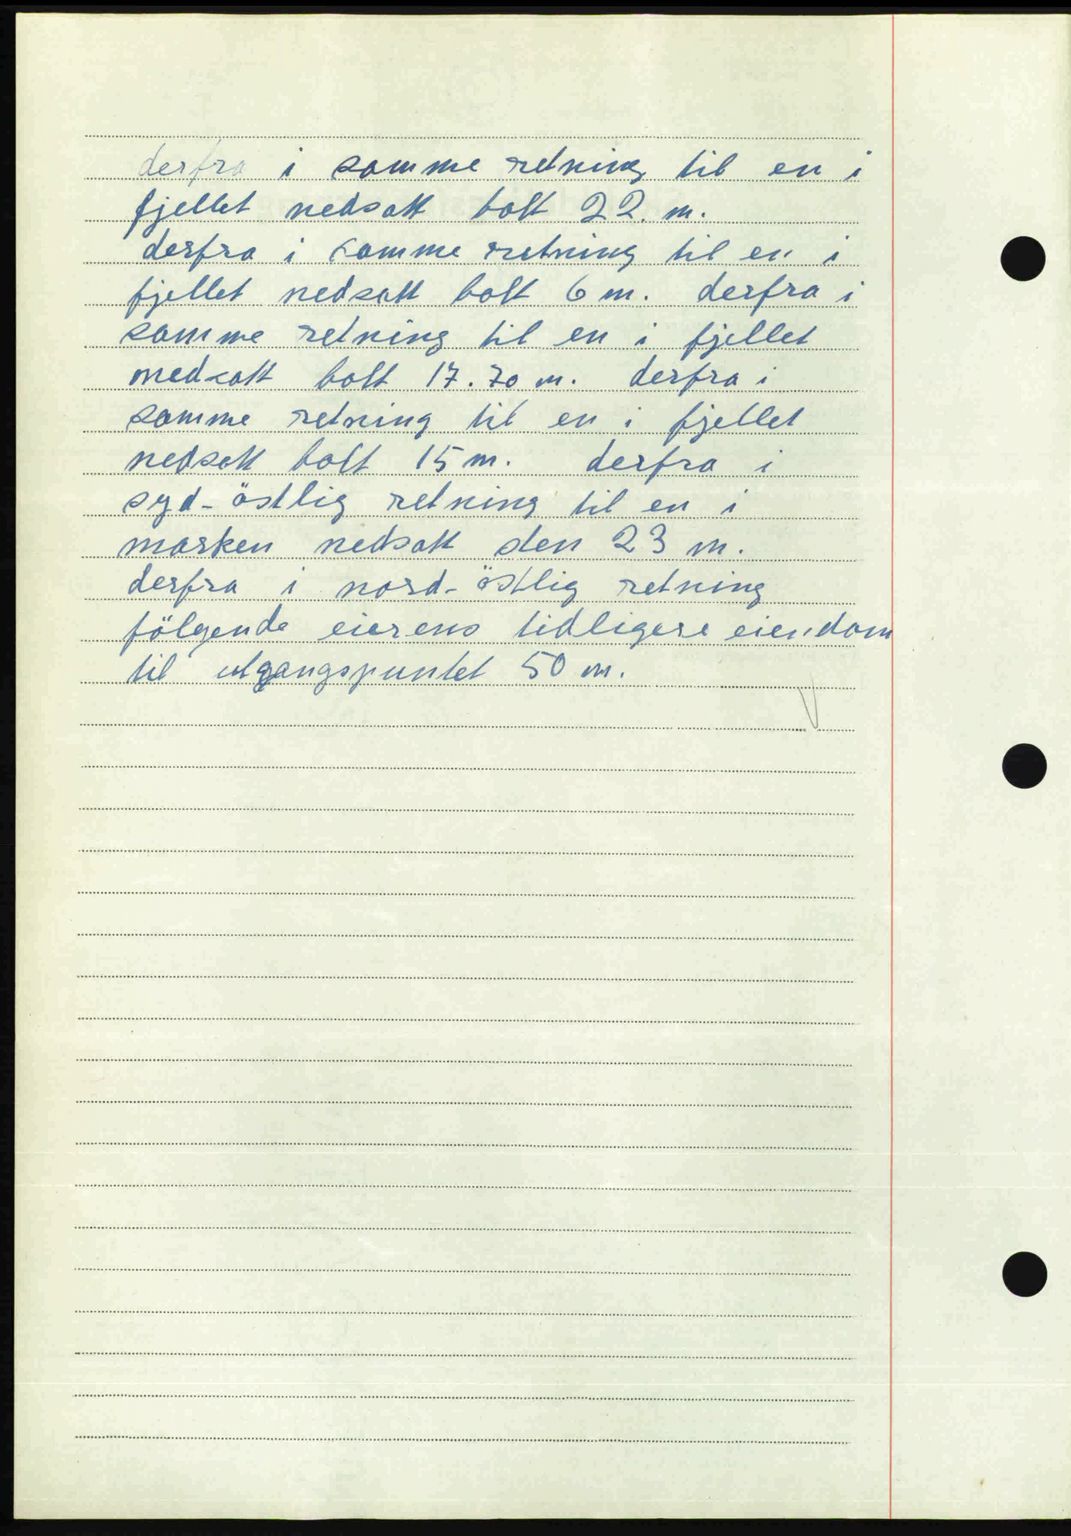 derfra i samme retning til en i
fjellet nedsatt bolt 22. m.
derfra i samme retning til en i
fjellet nedsatt bolt 6 m. derfra i
samme retning til en i fjellet
nedsatt bolt 17.70 m. derfra i
samme retning til en i fjellet
nedsatt bolt 15 m. derfra i
syd-östlig retning til en i
marken nedsatt sten 23 m.
derfra i nord-östlig retning
fölgende eierens tidligere eiendom
til utgangspuntet 50 m.